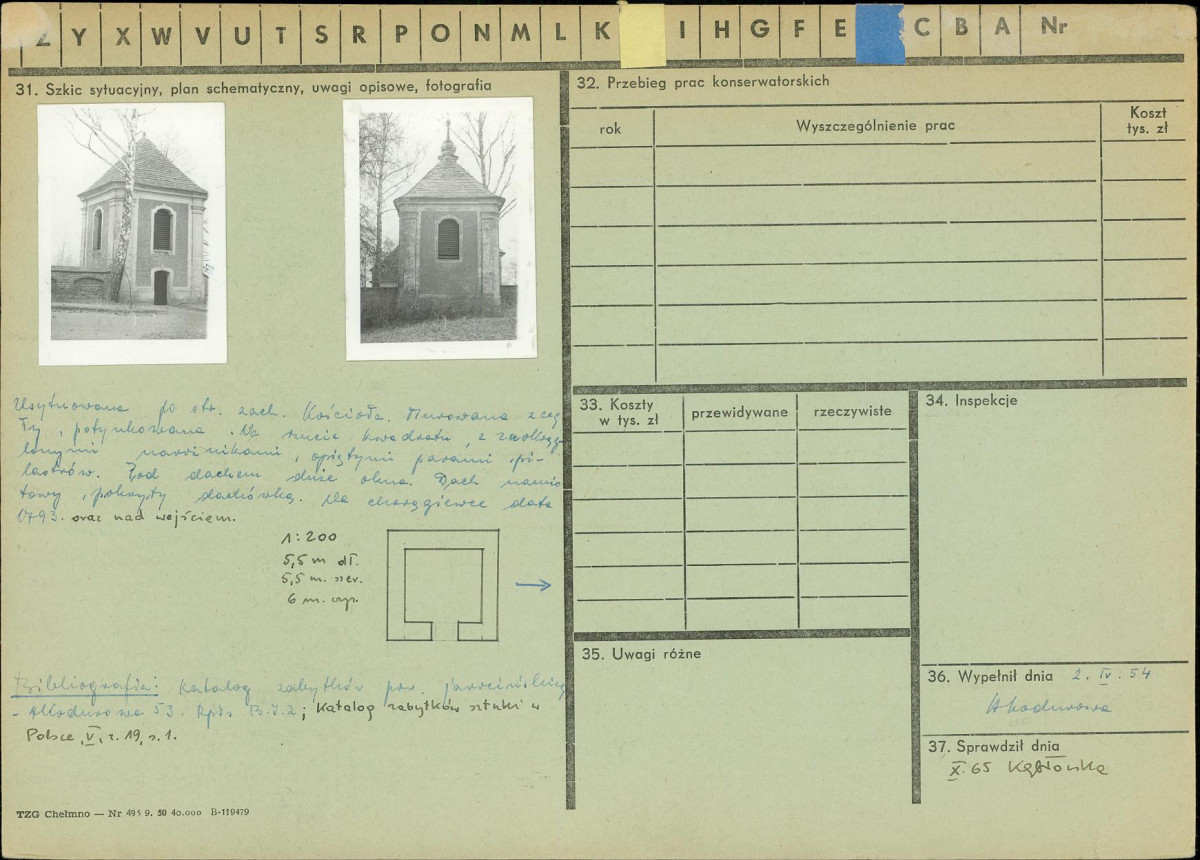 Z Y X W V U T S R P O N M L K I H G F E C B A Nr
31. Szkic sytuacyjny, plan schematyczny, uwagi opisowe, fotografia
Usytuowana po str. zach. Kościoła. Murowana z ceg
ły, potynkowana. Na rzucie kwadratu, z zaokrąg-
lonymi narożnikami, opiętymi parami pi-
lastrów. Pod dachem duże okna. Dach namio
towy, pokryty dachówką. Na chorągiewce data
1793. oraz nad wejściem.
1:200
5,5 m dł.
5,5 m. szer.
6 m. wys.
Bibliografia: Katalog zabytków pow. jarocińskiego
- 53. Rpis B.I.2; Katalog zabytków sztuki w
Polsce, V, z. 19, s. 1.
TZG Chełmno — Nr 495 9. 50 40.000 B-119479
32. Przebieg prac konserwatorskich
rok Wyszczególnienie prac Koszt
tys. zł
33. Koszty
w tys. zł przewidywane rzeczywiste
34. Inspekcje
35. Uwagi różne
36. Wypełnił dnia 2. IV. 54
37. Sprawdził dnia
X. 65